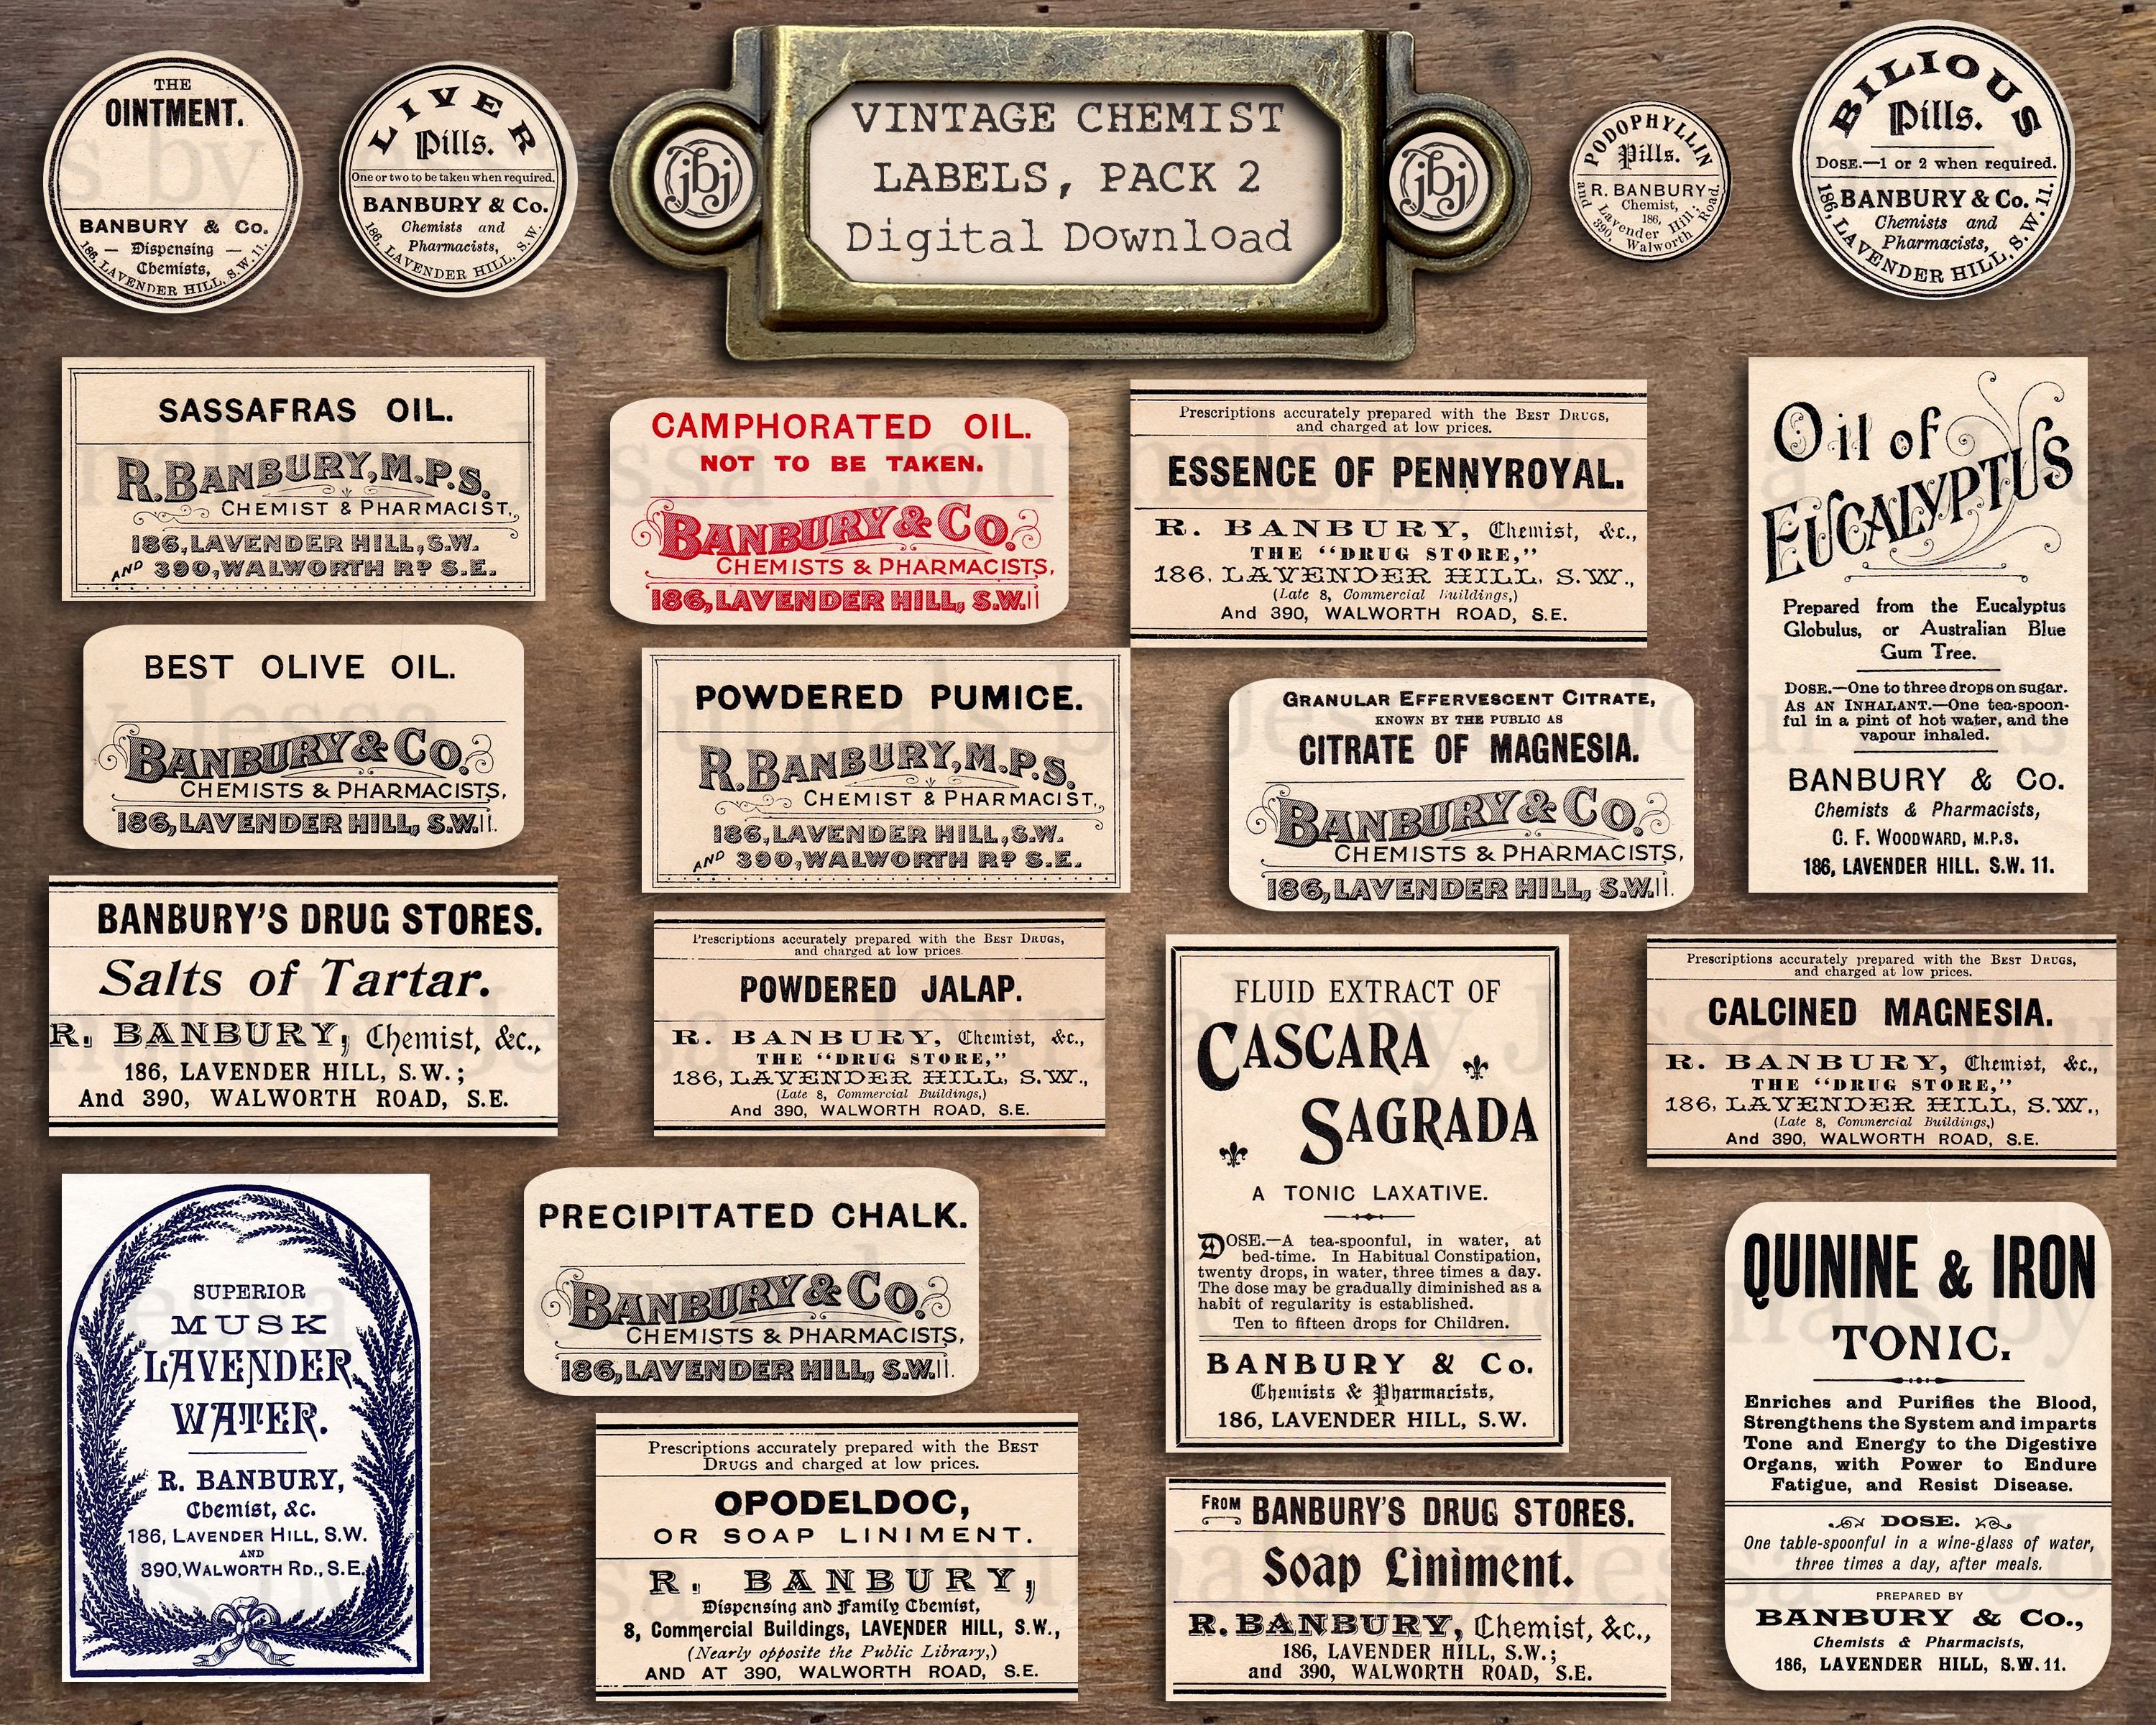 THE
OINTMENT.
BANBURY & Co.
— Dispensing —
Chemists,
186, LAVENDER HILL, S.W. 11.
LIVER
Pills.
One or two to be taken when required.
BANBURY & Co.
Chemists and
Pharmacists,
186, LAVENDER HILL, S.W.
jbj
VINTAGE CHEMIST
LABELS, PACK 2
Digital Download
jbj
PODOPHYLLIN
Pills.
R. BANBURY
Chemist,
186,
Lavender Hill;
and 390, Walworth Road.
BILIOUS
Pills.
DOSE.—1 or 2 when required.
BANBURY & Co.
Chemists and
Pharmacists,
186, LAVENDER HILL, S.W. 11.
SASSAFRAS OIL.
R. BANBURY, M.P.S.
CHEMIST & PHARMACIST,
186, LAVENDER HILL, S.W.
AND 390, WALWORTH RD S.E.
CAMPHORATED OIL.
NOT TO BE TAKEN.
BANBURY & Co.
CHEMISTS & PHARMACISTS,
186, LAVENDER HILL, S.W.11
Prescriptions accurately prepared with the BEST DRUGS,
and charged at low prices.
ESSENCE OF PENNYROYAL.
R. BANBURY, Chemist, &c.,
THE “DRUG STORE,”
186, LAVENDER HILL, S.W.,
(Late 8, Commercial Buildings,)
And 390, WALWORTH ROAD, S.E.
Oil of
EUCALYPTUS
Prepared from the Eucalyptus
Globulus, or Australian Blue
Gum Tree.
DOSE.—One to three drops on sugar.
AS AN INHALANT.—One tea-spoon-
ful in a pint of hot water, and the
vapour inhaled.
BANBURY & Co.
Chemists & Pharmacists,
C. F. WOODWARD, M.P.S.
186, LAVENDER HILL. S.W. 11.
BEST OLIVE OIL.
BANBURY & Co.
CHEMISTS & PHARMACISTS,
186, LAVENDER HILL, S.W.11.
POWDERED PUMICE.
R. BANBURY, M.P.S.
CHEMIST & PHARMACIST,
186, LAVENDER HILL, S.W.
AND 390, WALWORTH RD S.E.
GRANULAR EFFERVESCENT CITRATE,
KNOWN BY THE PUBLIC AS
CITRATE OF MAGNESIA.
BANBURY & Co.
CHEMISTS & PHARMACISTS,
186, LAVENDER HILL, S.W.11.
BANBURY'S DRUG STORES.
Salts of Tartar.
R. BANBURY, Chemist, &c.,
186, LAVENDER HILL, S.W.;
And 390, WALWORTH ROAD, S.E.
Prescriptions accurately prepared with the BEST DRUGS,
and charged at low prices.
POWDERED JALAP.
R. BANBURY, Chemist, &c.,
THE “DRUG STORE,”
186, LAVENDER HILL, S.W.,
(Late 8, Commercial Buildings,)
And 390, WALWORTH ROAD, S.E.
FLUID EXTRACT OF
CASCARA
SAGRADA
A TONIC LAXATIVE.
DOSE.—A tea-spoonful, in water, at
bed-time. In Habitual Constipation,
twenty drops, in water, three times a day.
The dose may be gradually diminished as a
habit of regularity is established.
Ten to fifteen drops for Children.
BANBURY & Co.
Chemists & Pharmacists,
186, LAVENDER HILL, S.W.
Prescriptions accurately prepared with the BEST DRUGS,
and charged at low prices.
CALCINED MAGNESIA.
R. BANBURY, Chemist, &c.,
THE “DRUG STORE,”
186, LAVENDER HILL, S.W.,
(Late 8, Commercial Buildings,)
And 390, WALWORTH ROAD, S.E.
SUPERIOR
MUSK
LAVENDER
WATER.
R. BANBURY,
Chemist, &c.
186, LAVENDER HILL, S.W.
AND
390, WALWORTH RD., S.E.
PRECIPITATED CHALK.
BANBURY & Co.
CHEMISTS & PHARMACISTS,
186, LAVENDER HILL, S.W.11.
Prescriptions accurately prepared with the BEST
DRUGS and charged at low prices.
OPODELDOC,
OR SOAP LINIMENT.
R. BANBURY,
Dispensing and Family Chemist,
8, Commercial Buildings, LAVENDER HILL, S.W.,
(Nearly opposite the Public Library,)
AND AT 390, WALWORTH ROAD, S.E.
FROM BANBURY'S DRUG STORES.
Soap Liniment.
R. BANBURY, Chemist, &c.,
186, LAVENDER HILL, S.W.;
and 390, WALWORTH ROAD, S.E.
QUININE & IRON
TONIC.
Enriches and Purifies the Blood,
Strengthens the System and imparts
Tone and Energy to the Digestive
Organs, with Power to Endure
Fatigue, and Resist Disease.
DOSE.
One table-spoonful in a wine-glass of water,
three times a day, after meals.
PREPARED BY
BANBURY & Co.,
Chemists & Pharmacists,
186, LAVENDER HILL, S.W. 11.